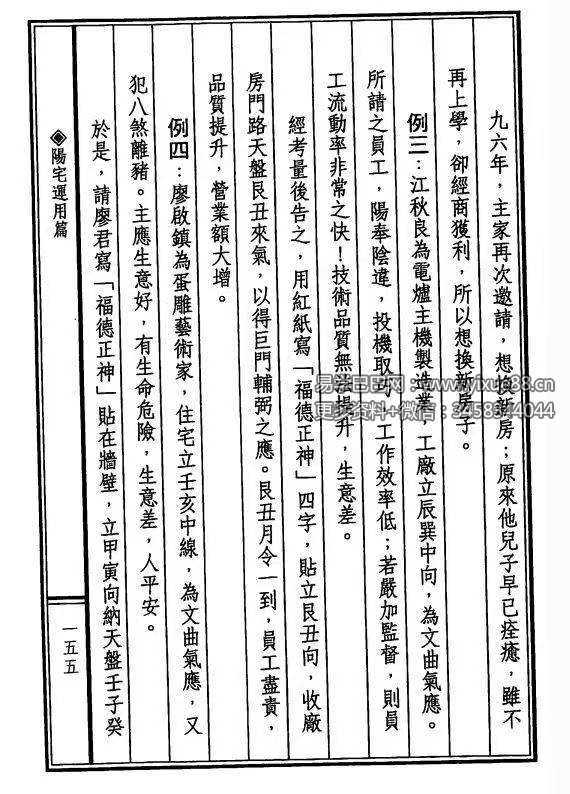 九六年，主家再次邀請，想換新房；原來他兒子早已痊癒，雖不
再上學，卻經商獲利，所以想換新房子。
例三：江秋良為電爐主機製造業，工廠立辰巽中向，為文曲氣應。
所請之員工，陽奉陰違，投機取巧！工作效率低；若嚴加監督，則員
工流動率非常之快！技術品質無法提升，生意差。
經考量後告之，用紅紙寫「福德正神」四字，貼立艮丑向，收廠
房門路天盤艮丑來氣，以得巨門輔弼之應。艮丑月令一到，員工盡責，
品質提升，營業額大增。
例四：廖啟鎮為蛋雕藝術家，住宅立壬亥中線，為文曲氣應，又
犯八煞離豬。主應生意好，有生命危險，生意差，人平安。
於是，請廖君寫「福德正神」貼在牆壁，立甲寅向納天盤壬子癸
◈陽宅運用篇
一五五
易學巴巴网：www.yixue88.cn
更多资料+微信：3458344044